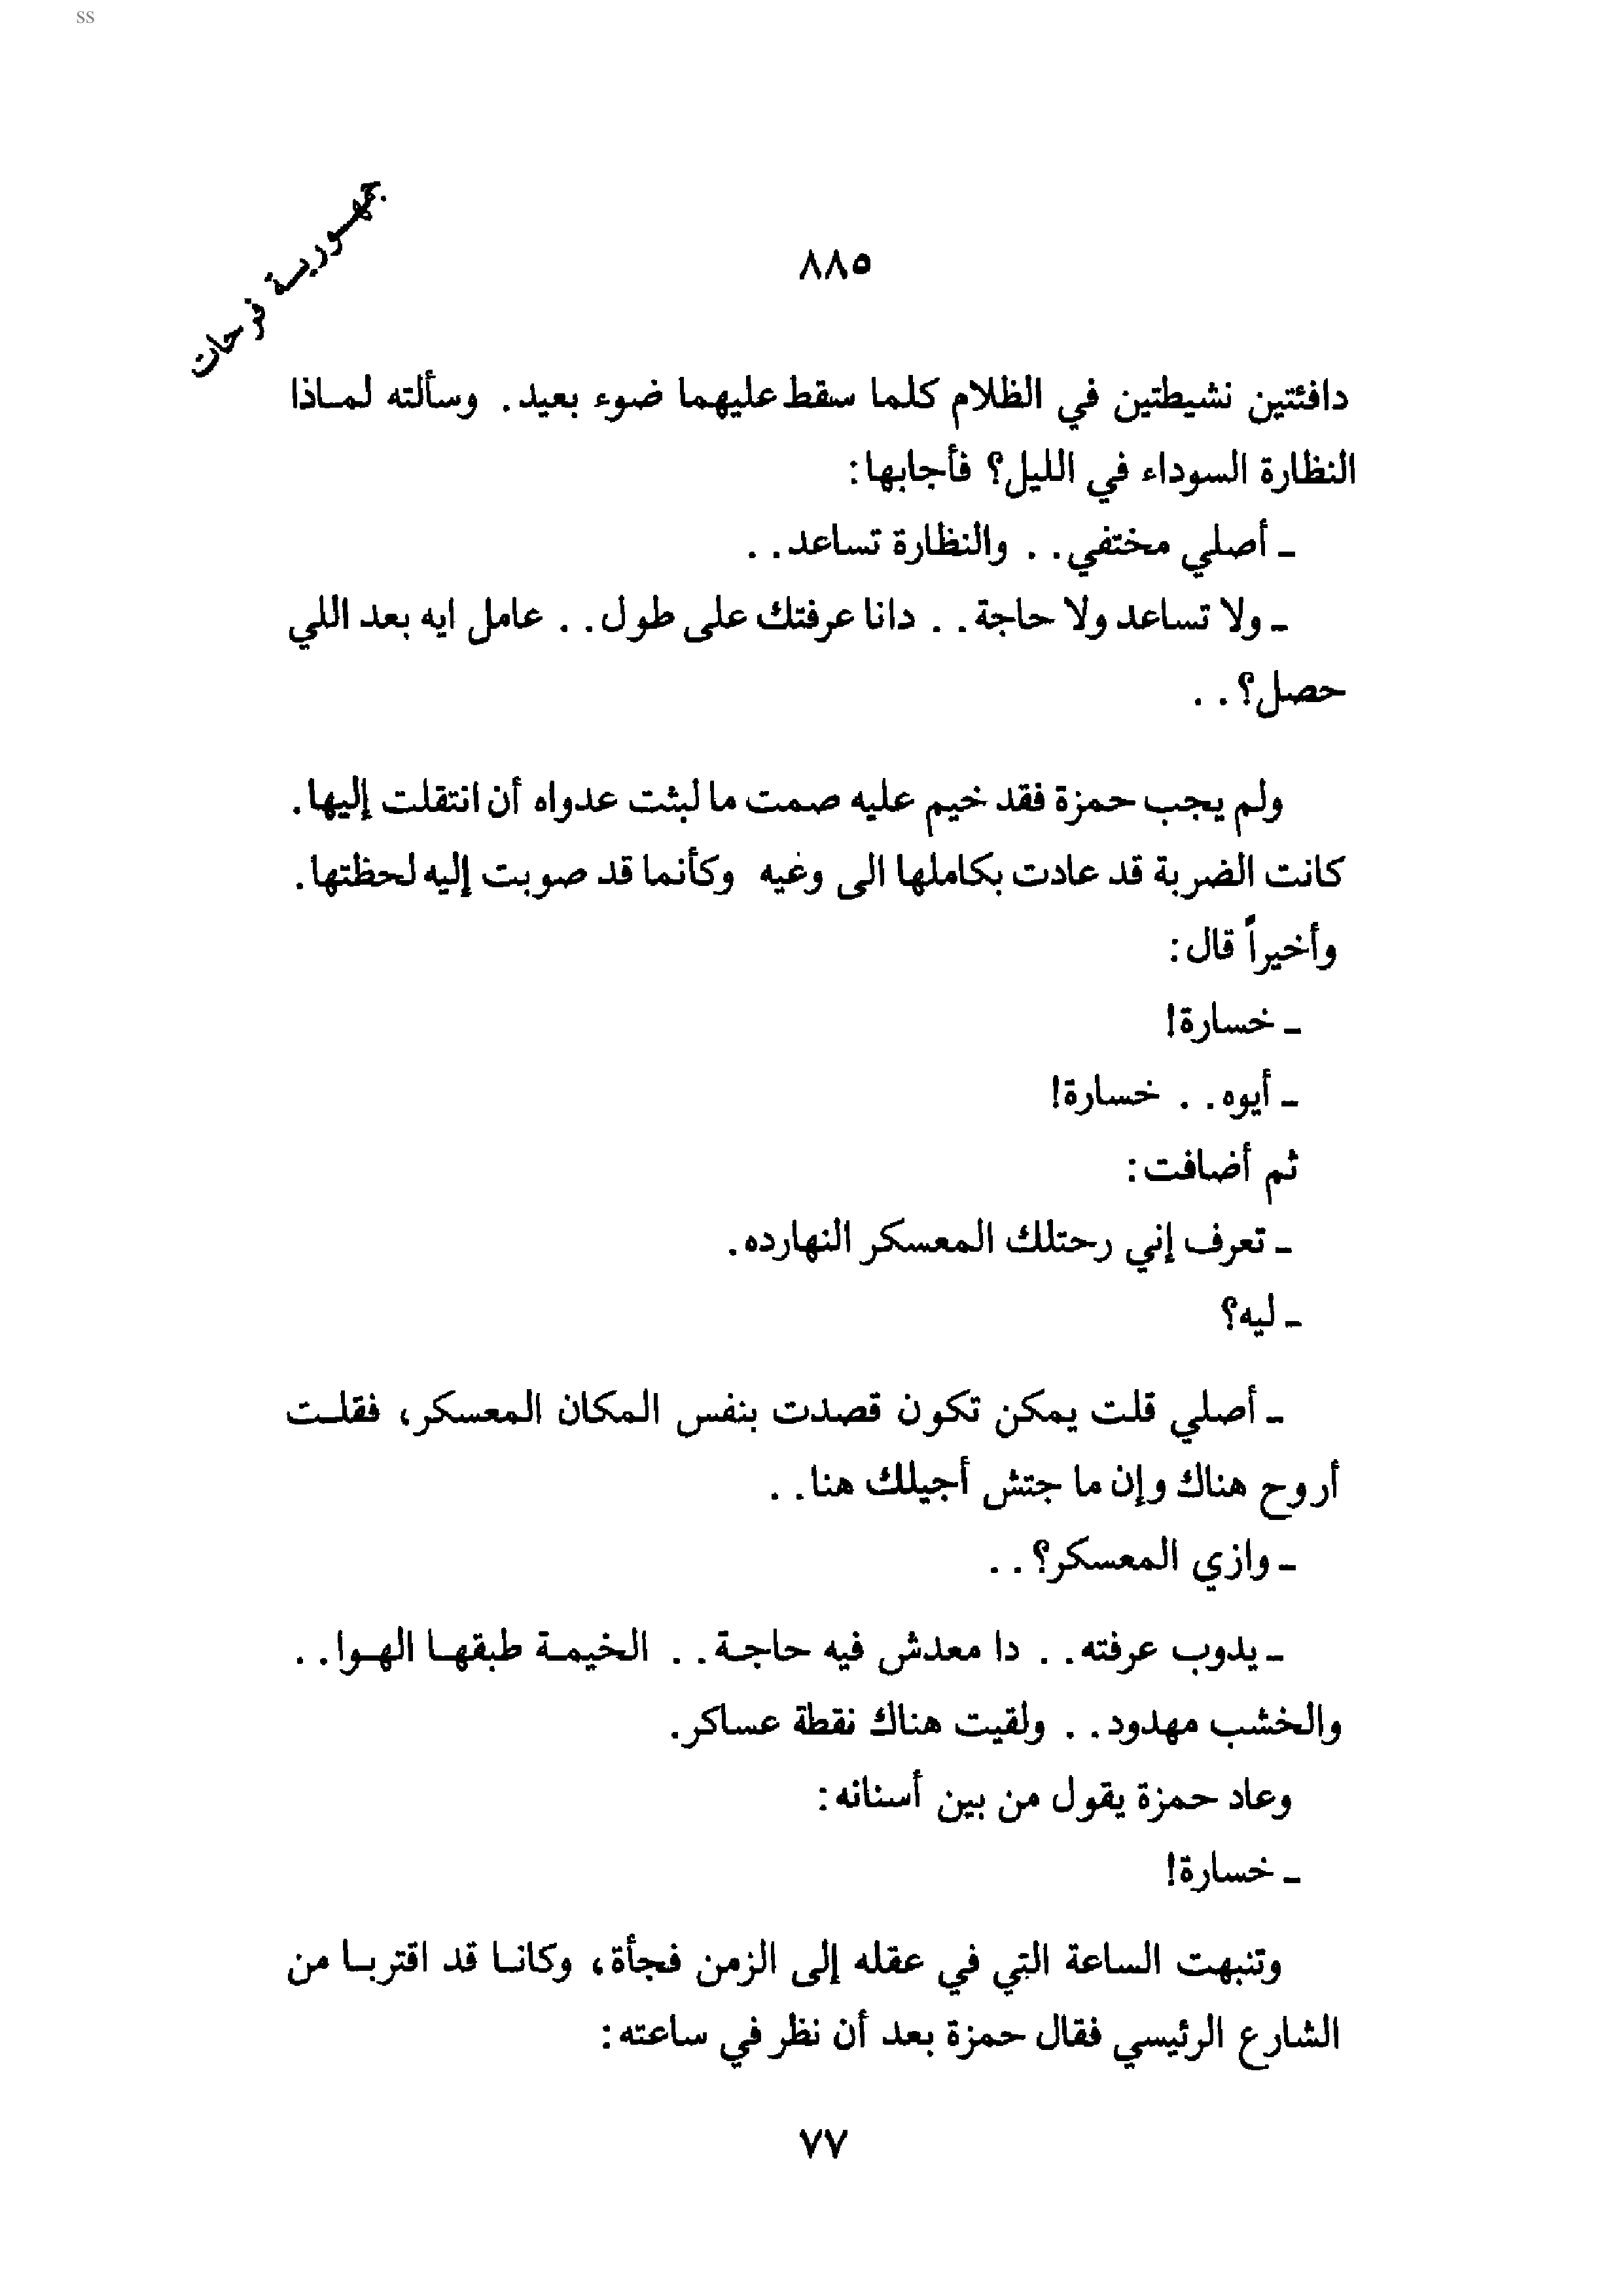 ss
جمهورية فرحات
٨٨٥
دافئتين نشيطتين في الظلام كلما سقط عليهما ضوء بعيد. وسألته لماذا
النظارة السوداء في الليل؟ فأجابها:
ـ أصلي مختفي. . والنظارة تساعد. .
ـ ولا تساعد ولا حاجة. . دانا عرفتك على طول. . عامل ايه بعد اللي
حصل؟. .
ولم يجب حمزة فقد خيم عليه صمت ما لبثت عدواه أن انتقلت إليها.
كانت الضربة قد عادت بكاملها الى وغيه وكأنما قد صوبت إليه لحظتها.
وأخيراً قال:
ـ خسارة!
ـ أيوه. . خسارة!
ثم أضافت:
ـ تعرف إني رحتلك المعسكر النهارده.
ـ ليه؟
ـ أصلي قلت يمكن تكون قصدت بنفس المكان المعسكر، فقلت
أروح هناك وإن ما جتش أجيلك هنا. .
ـ وازي المعسكر؟. .
ـ يدوب عرفته. . دا معدش فيه حاجة. . الخيمة طبقها الهوا. .
والخشب مهدود. . ولقيت هناك نقطة عساكر.
وعاد حمزة يقول من بين أسنانه:
ـ خسارة!
وتنبهت الساعة التي في عقله إلى الزمن فجأة، وكانا قد اقتربا من
الشارع الرئيسي فقال حمزة بعد أن نظر في ساعته:
٧٧